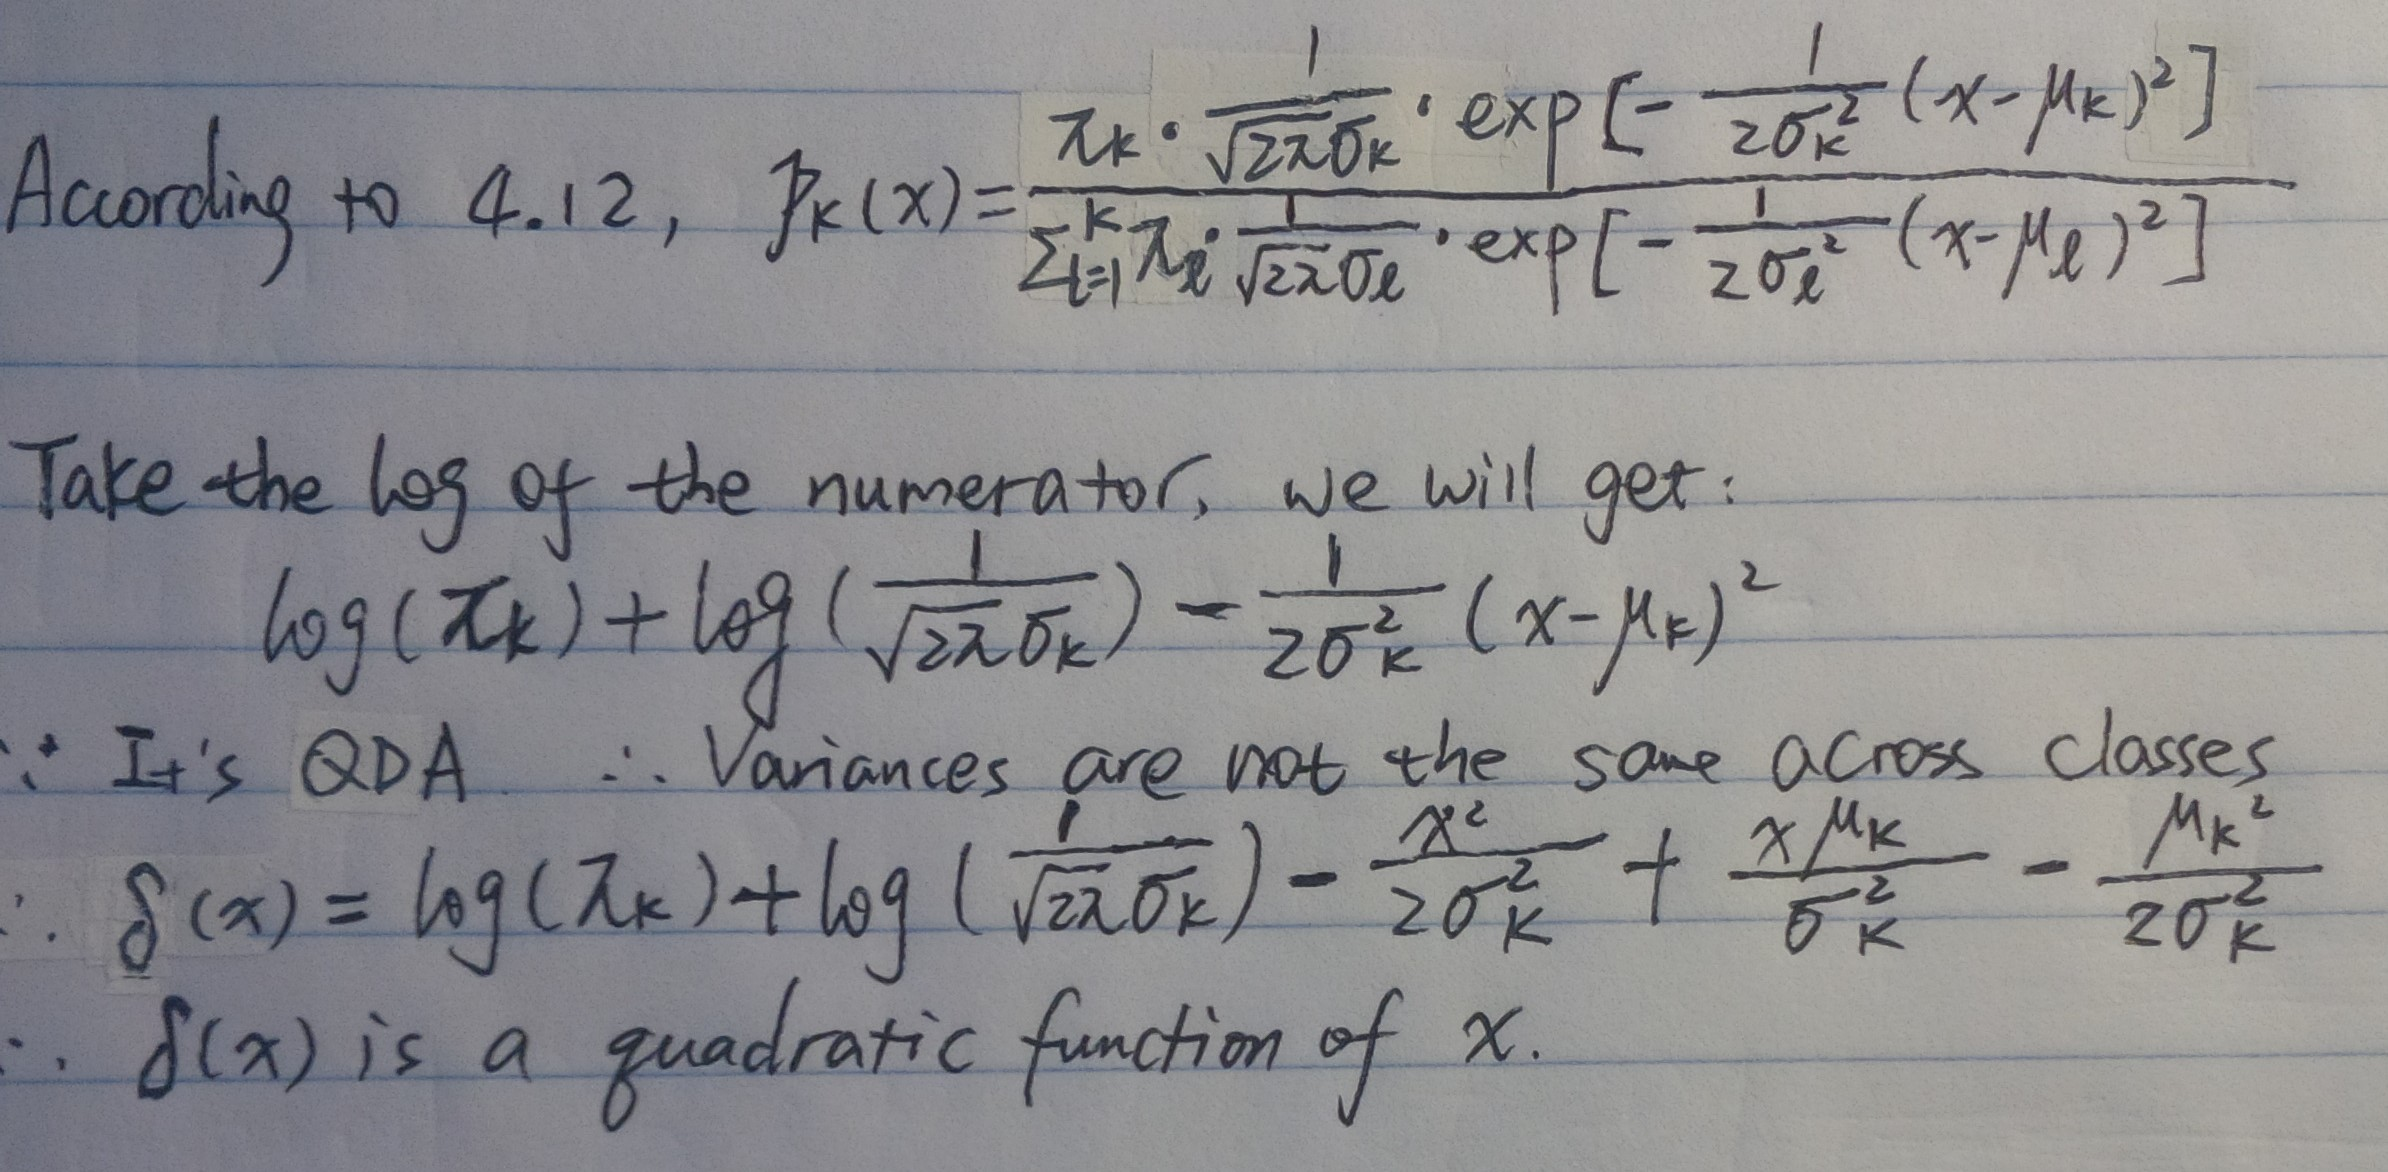 According to 4.12, p_k(x) = \frac{π_k · \frac{1}{\sqrt{2π}σ_k} · exp[-\frac{1}{2σ_k^2}(x-μ_k)^2]}{\sum_{l=1}^{K} π_l · \frac{1}{\sqrt{2π}σ_l} · exp[-\frac{1}{2σ_l^2}(x-μ_l)^2]}
Take the log of the numerator, we will get:
log(π_k) + log(\frac{1}{\sqrt{2π}σ_k}) - \frac{1}{2σ_k^2}(x-μ_k)^2
∵ It's QDA ∴ Variances are not the same across classes
∴ δ(x) = log(π_k) + log(\frac{1}{\sqrt{2π}σ_k}) - \frac{x^2}{2σ_k^2} + \frac{xμ_k}{σ_k^2} - \frac{μ_k^2}{2σ_k^2}
∴ δ(x) is a quadratic function of x.